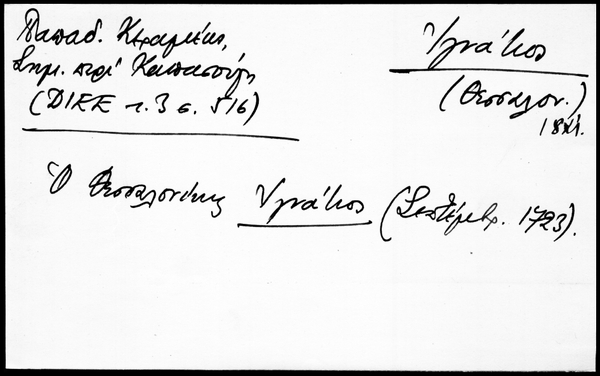 Παπαδ. Κεραμέως,
Σημ. περί Καπασούλη
(ΔΙΕΕ τ. 3 σ. 516)
Ιγνάτιος
(Θεσσαλον.)
18 αι.
Ὁ Θεσσαλονίκης Ιγνάτιος (Σεπτέμβρ. 1723).